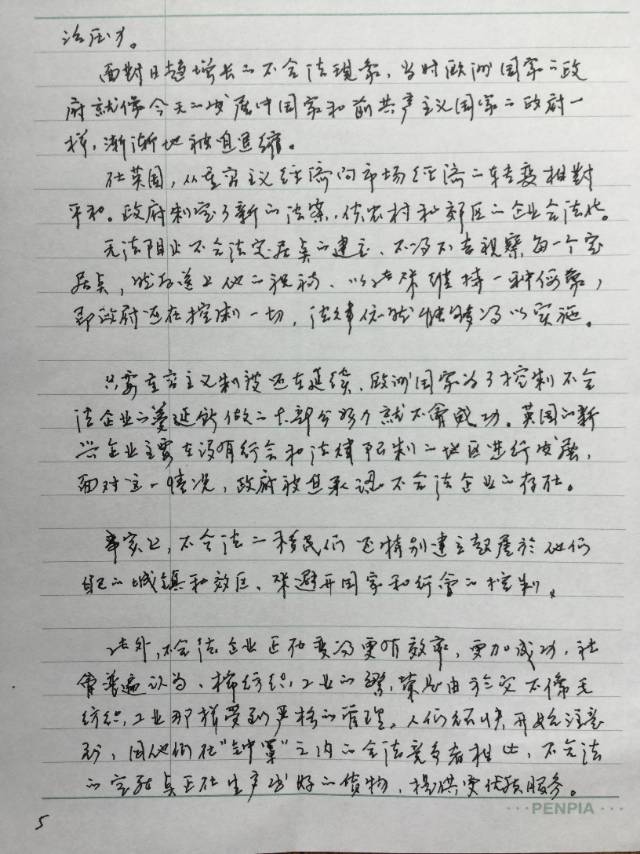 治压力。
面對日趋增长的不合法现象，当时欧洲国家的政
府就像今天的发展中国家和前共产主义国家的政府一
样，渐渐地被迫退缩。
在英国，从重商主义经济向市场经济的转变相對
平和。政府制定了新的法案，使农村和郊区的企业合法化。
无法阻止不合法定居点的建立、不得不去视察每一个定
居点，然后送上他的祝福，以此来维持一种假象，
即政府还在控制一切，法律依然能够得以实施。
只要重商主义制度还在延续，欧洲国家为了控制不合
法企业的蔓延所做的大部分努力就不會成功。英国的新
兴企业主要在没有行会和法律限制的地区进行发展，
面对这一情况，政府被迫承认不合法企业的存在。
事实上，不合法的移民们还特别建立起属於他们
自己的城鎮和郊区，来避开国家和行會的控制。
此外，不合法企业正在变得更有效率，更加成功，社
會普遍认为、棉纺织工业的繁荣是由於它不像毛
纺织工业那样受到严格的管理。人们很快开始注意
到，同他们在“钟罩”之内的合法竞争者相比，不合法
的定居点正在生产出好的货物，提供更优质服务。
5
PENPIA